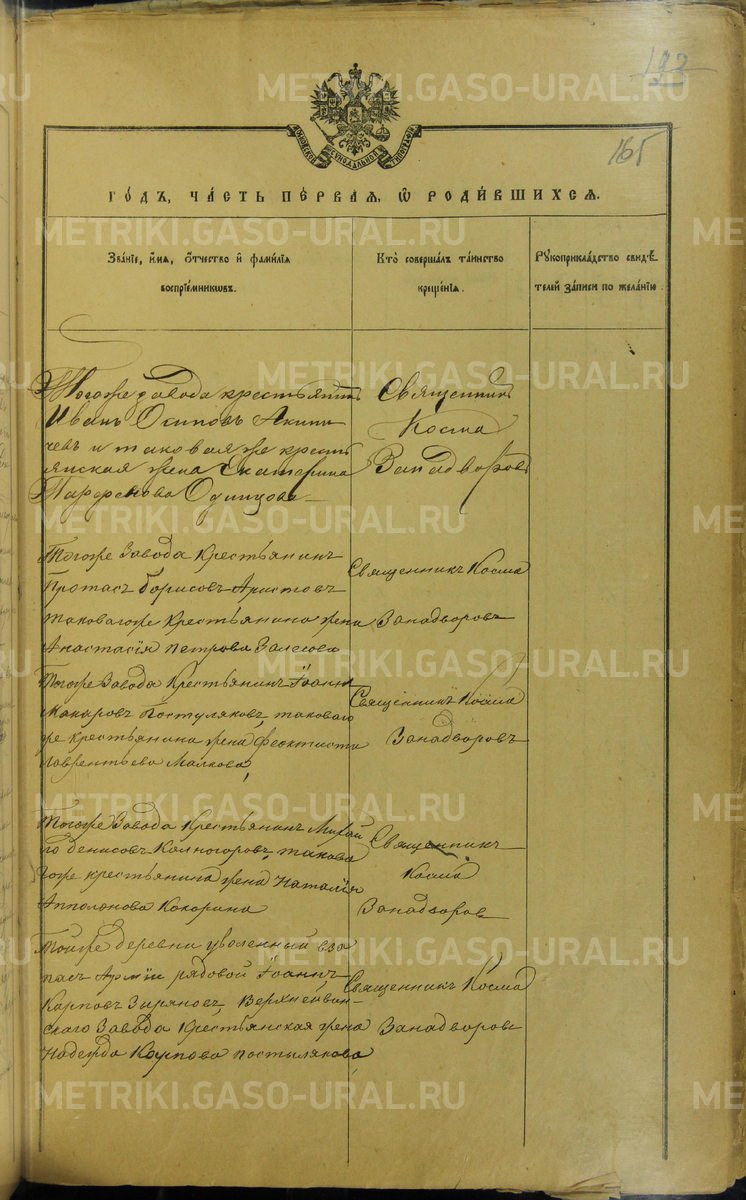 193
165
МОСКОВСКОЙ СѴНОДАЛЬНОЙ ТИПОГРАФІИ
ГОДЪ, ЧАСТЬ ПЕРВАЯ, Ѡ РОДИВШИХСЯ.
Званіе, имя, отчество и фамилія воспріемниковъ.
Кто совершалъ таинство крещенія.
Рукоприкладство свидѣтелей записи по желанію.
Тогоже завода крестьянинъ
Иванъ Осиповъ Акини
чевъ и таковая же кресть
янская жена Екатерина
Парфенова Одинцова
Священникъ
Косма
Западворовъ
Тогоже Завода Крестьянинъ
Протасъ Борисовъ Аристовъ
таковагоже Крестьянина жена
Анастасія Петрова Залесова
Священникъ Косма
Занадворовъ
Тогоже Завода Крестьянинъ Іоаннъ
Макаровъ Постуляковъ, таковаго
же крестьянина жена Феоктиста
Лаврентьева Малкова,
Священникъ Косма
Занадворовъ
Тогоже Завода Крестьянинъ Михаи
лъ Денисовъ Колногоровъ, такова
гоже крестьянина жена Наталія
Апполонова Кокорина
Священникъ
Косма
Занадворовъ
Тойже деревни уволенный вза
пасъ Арміи рядовой Іоаннъ
Карповъ Зыряновъ, Верхнейвин-
скаго Завода Крестьянская жена
Надежда Карпова Постылякова
Священникъ Косма
Занадворовъ
METRIKI.GASO-URAL.RU